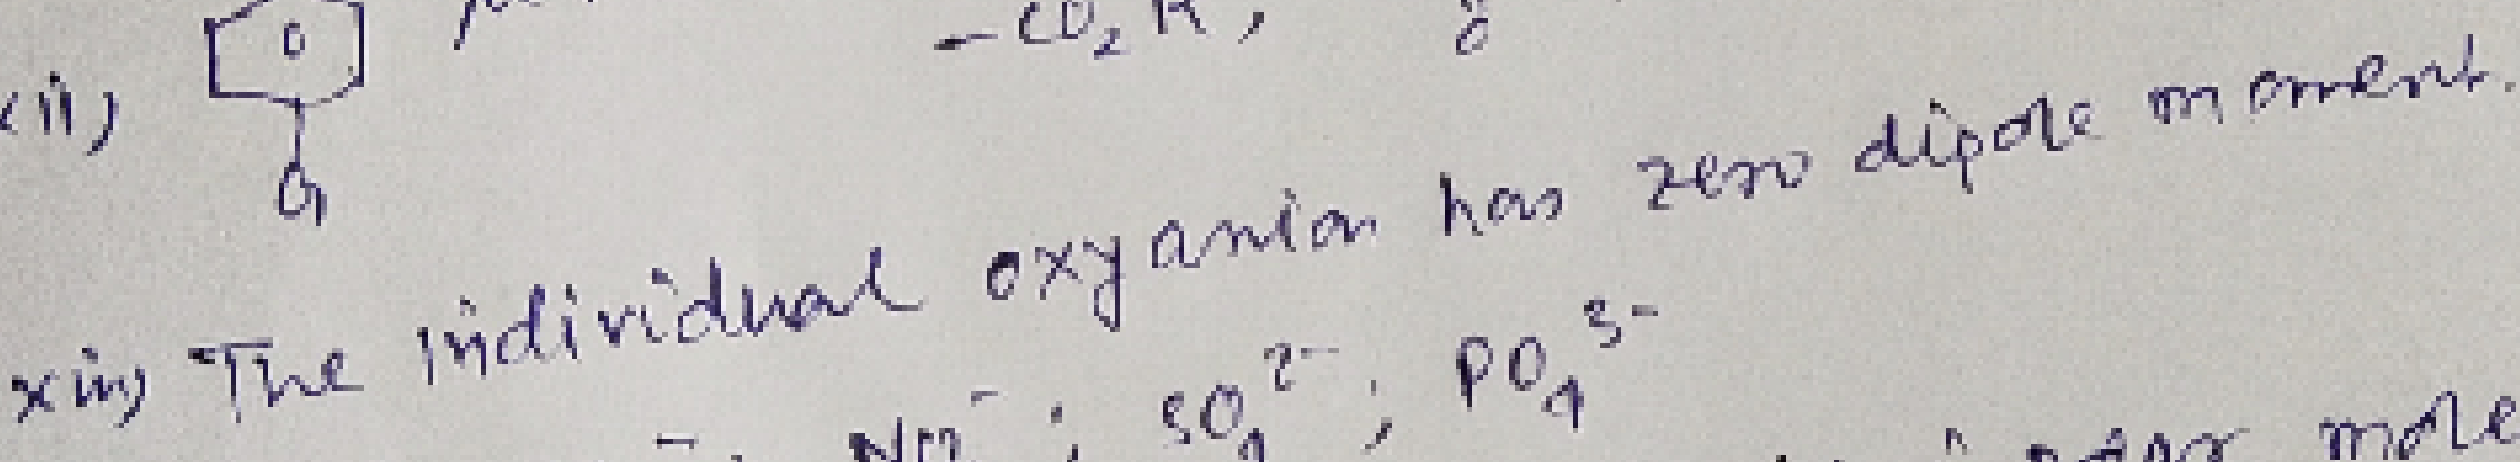 - CO₂R,
(ii)
xiii) The individual oxyanion has zero dipole moment.
; SO₄²⁻ ; PO₄³⁻
mole